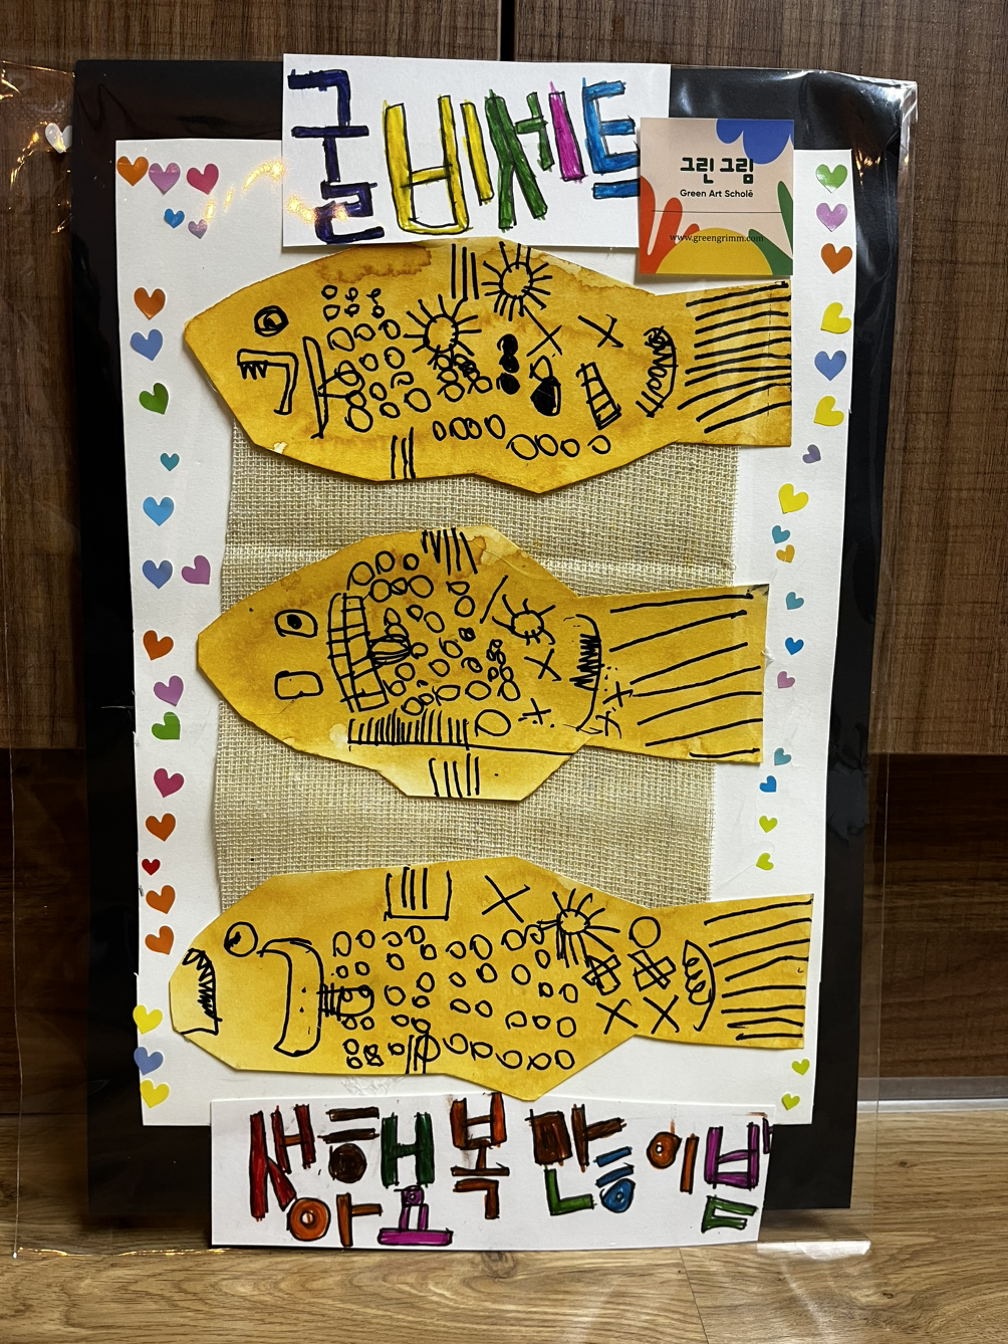 굴비세트
그린 그림
Green Art Scholē
www.greengrimm.com
복 많이 받